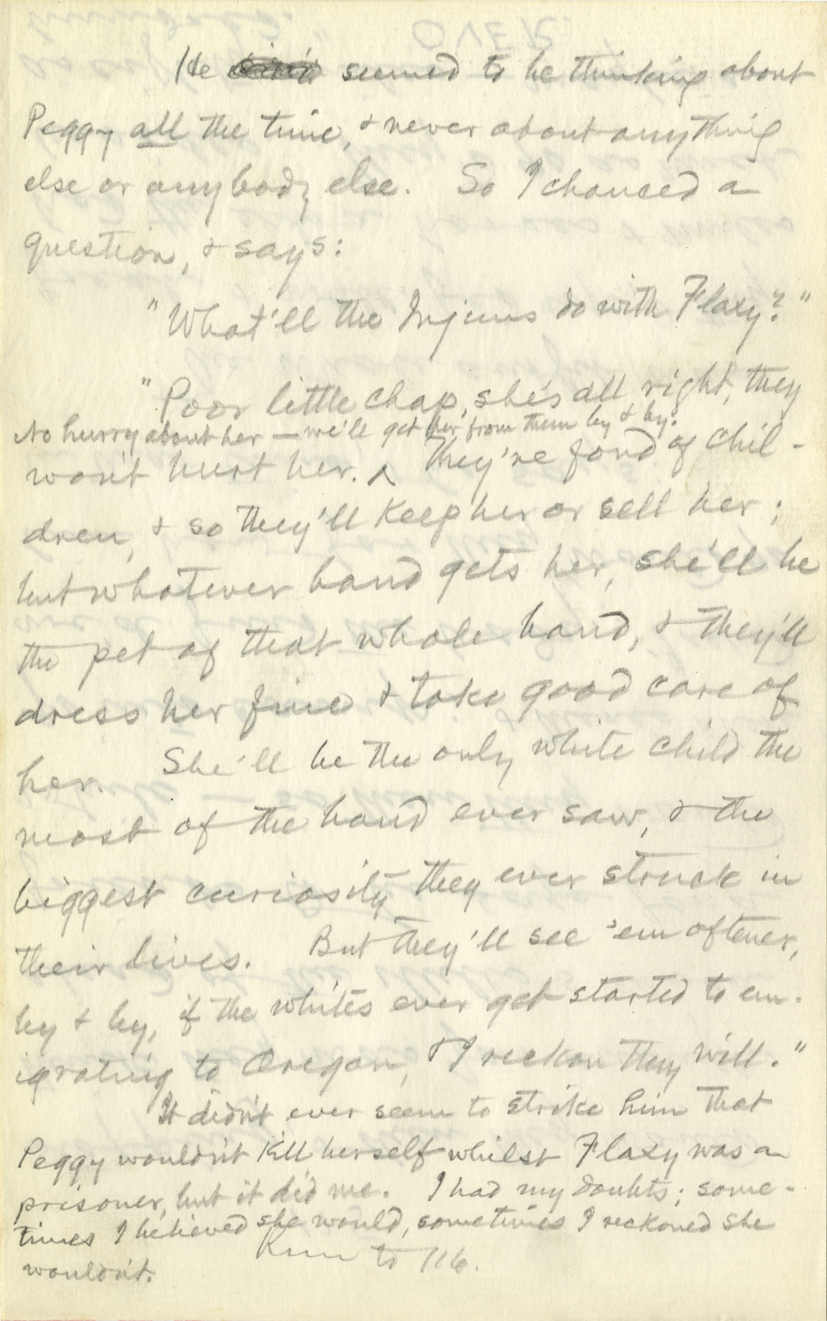 He seemed to be thinking about
Peggy all the time, & never about anything
else or anybody else. So I chanced a
question, & says:
"What'll the Injuns do with Flaxy?"
"Poor little chap, she's all right, they
No hurry about her — we'll get her from them by & by.
won't hurt her. ^ They're fond of chil-
dren, & so they'll keep her or sell her;
but whatever band gets her, she'll be
the pet of that whole band, & they'll
dress her fine & take good care of
her. She'll be the only white child the
most of the band ever saw, & the
biggest curiosity they ever struck in
their lives. But they'll see 'em oftener,
by & by, if the whites ever get started to em-
igrating to Oregon, & I reckon they will."
It didn't ever seem to strike him that
Peggy wouldn't kill herself whilst Flaxy was a
prisoner, but it did me. I had my doubts; some-
times I believed she would, sometimes I reckoned she
wouldn't.
Run to 116.